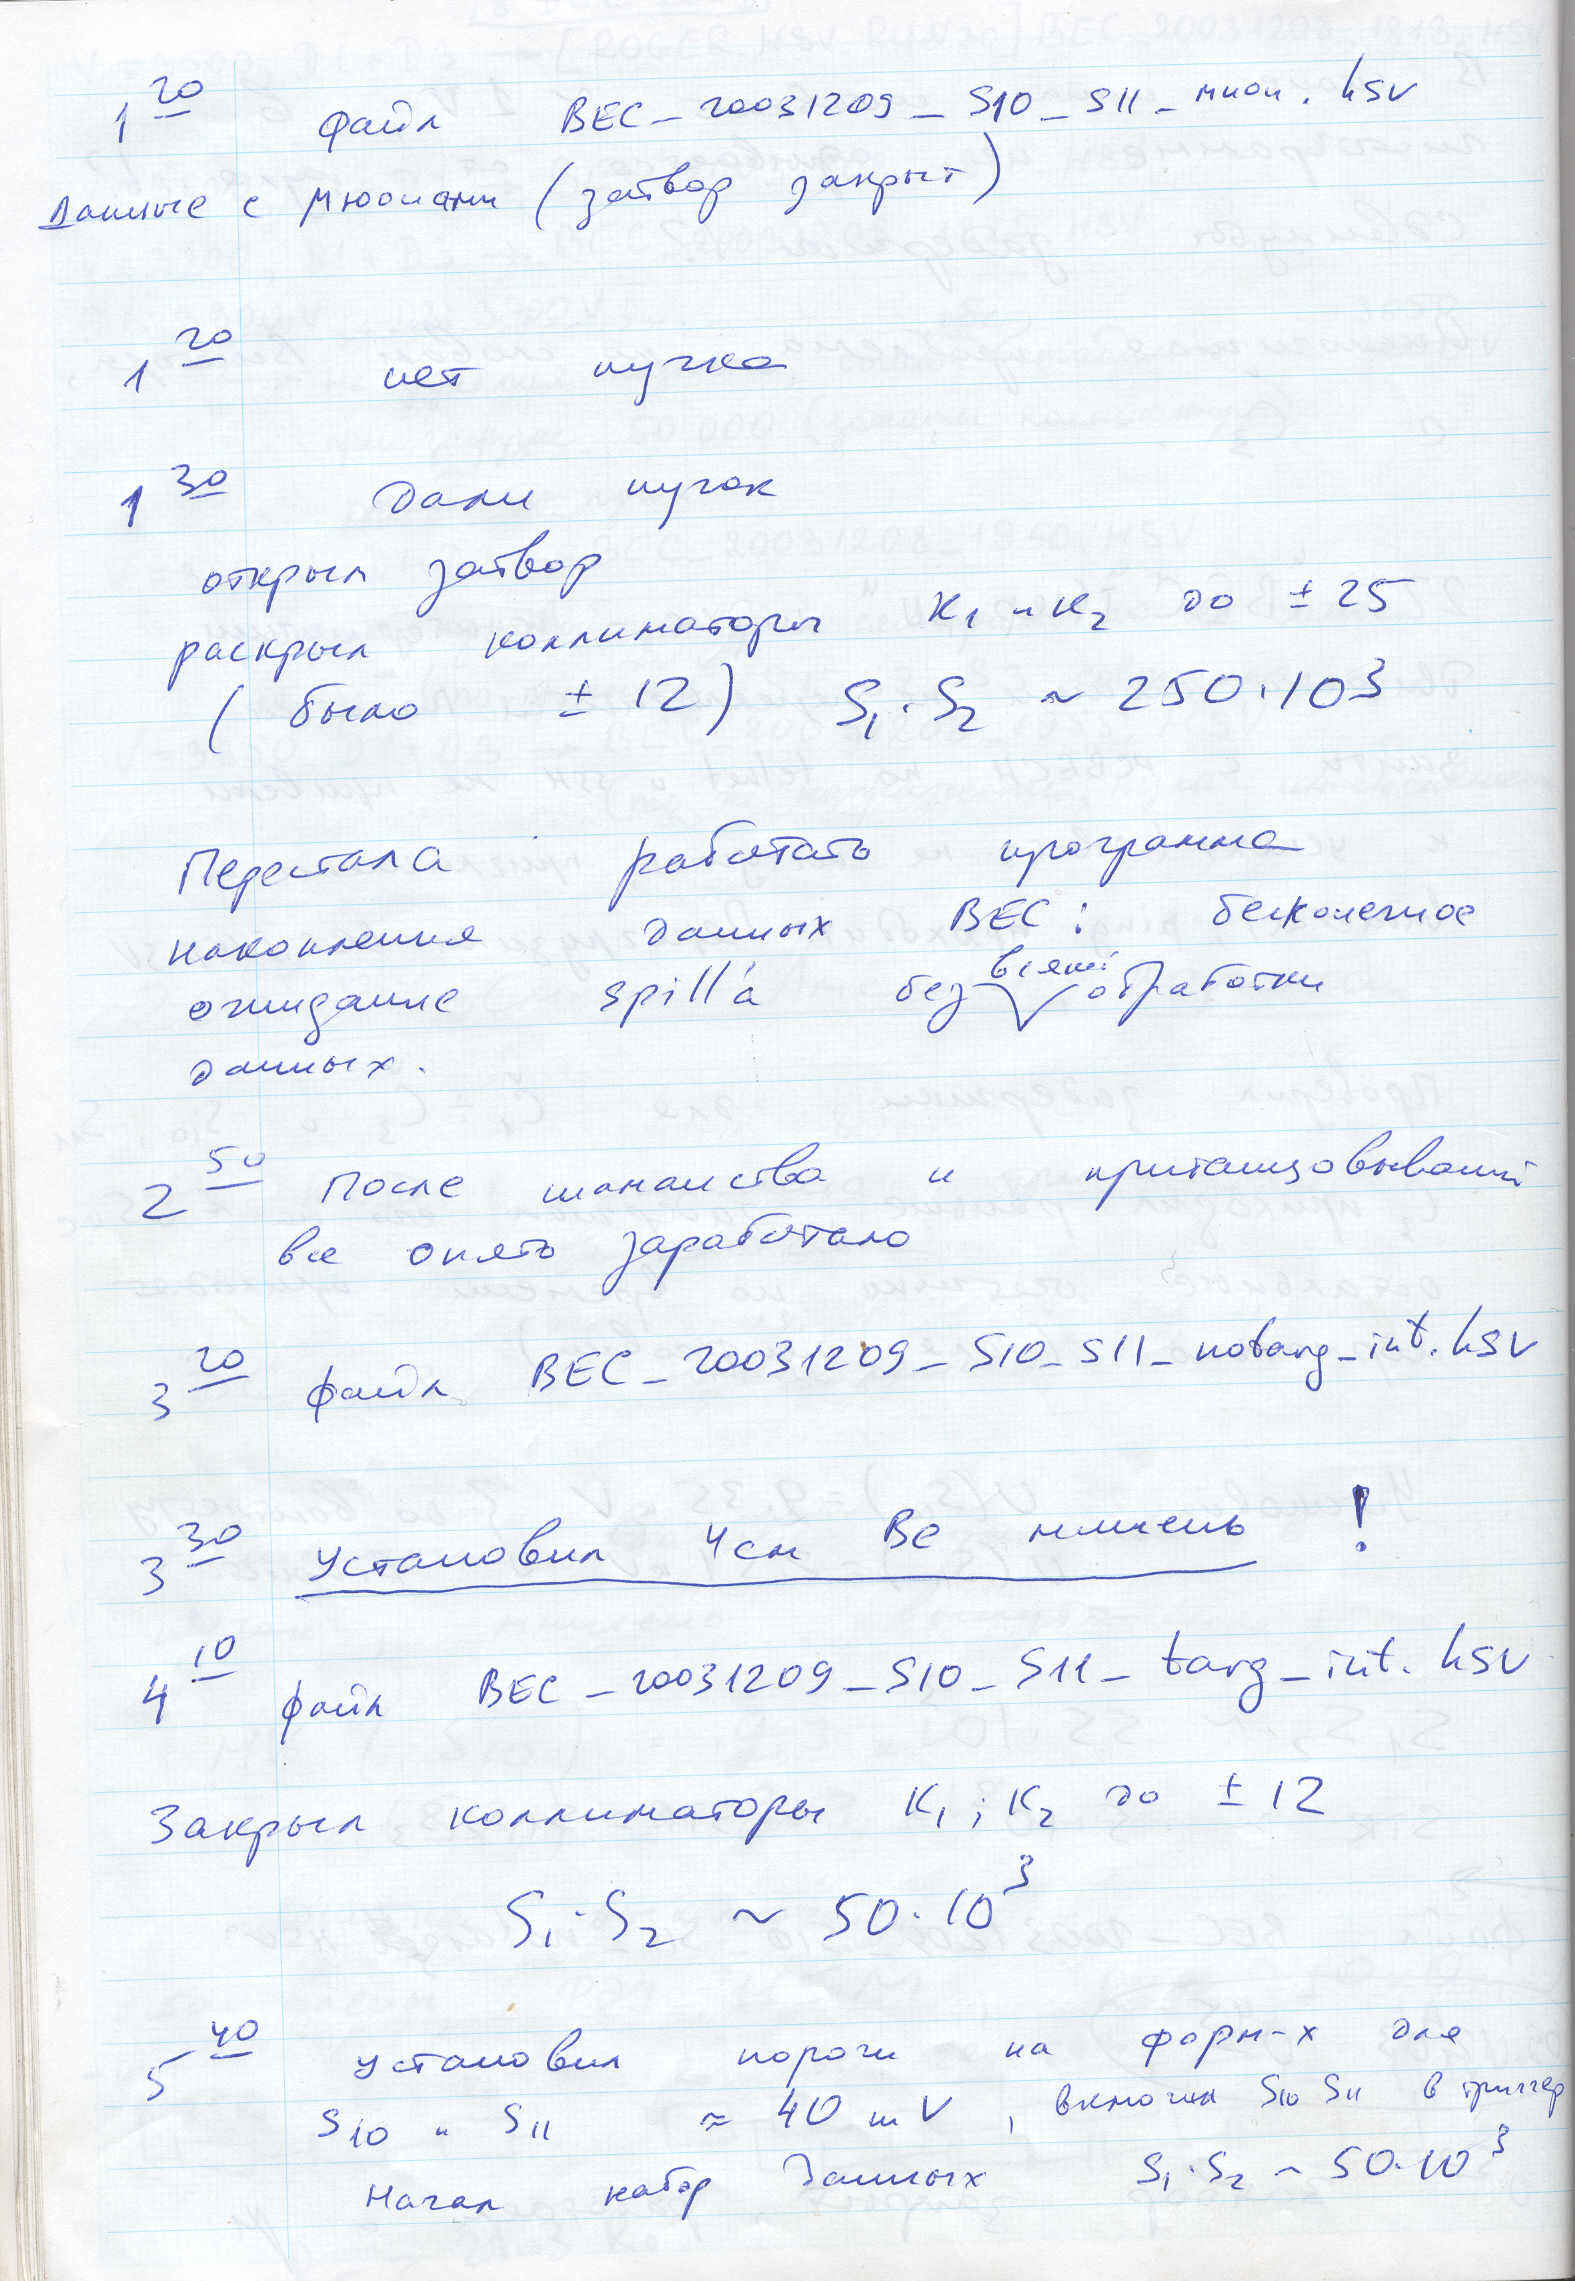 1 20 файл BEC_20031209_S10_S11_мион.hsv
Данные с мюонами (затвор закрыт)
1 20 нет пучка
1 30 Дали пучок
открыл затвор
раскрыл коллиматоры K1 и K2 до ± 25
(было ± 12) S1·S2 ~ 250·10³
Перестала работать программа
накопления данных BEC: бесконечное
ожидание spill'а без всякой обработки
данных.
2 50 После шаманства и пританцовываний
все опять заработало
3 20 файл BEC_20031209_S10_S11_notarg_int.hsv
3 30 Установил 4см Be мишень !
4 10 файл BEC_20031209_S10_S11_targ_int.hsv
Закрыл коллиматоры K1; K2 до ± 12
S1·S2 ~ 50·10³
5 40 Установил пороги на форм-х для
S10 и S11 ≈ 40 mV, включил S10 S11 в триггер
Начал набор данных S1·S2 ~ 50·10³